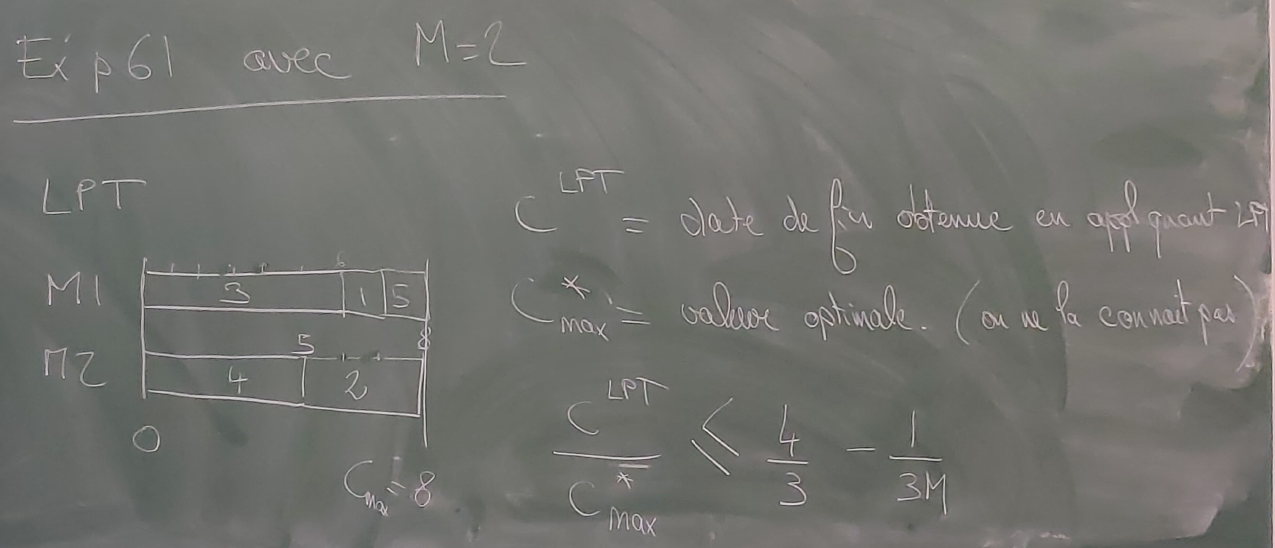 Ex p 61 avec M=2
LPT
M1 3 6 1 5
M2 4 5 2 8
0
Cmax = 8
C^LPT = date de fin obtenue en appliquant LPT
C*max = valeur optimale. (on ne la connait pas)
C^LPT / C*max ⩽ 4/3 - 1/3M